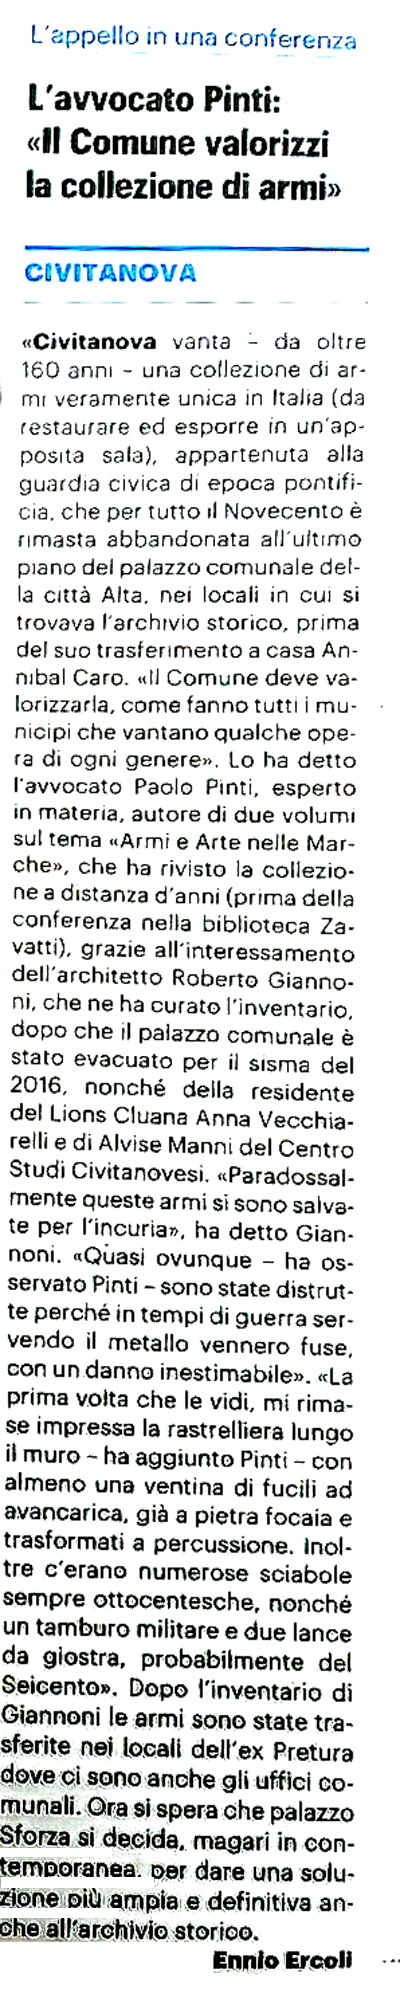 L'appello in una conferenza
L'avvocato Pinti:
«Il Comune valorizzi
la collezione di armi»
CIVITANOVA
«Civitanova vanta – da oltre
160 anni – una collezione di ar-
mi veramente unica in Italia (da
restaurare ed esporre in un'ap-
posita sala), appartenuta alla
guardia civica di epoca pontifi-
cia, che per tutto il Novecento è
rimasta abbandonata all'ultimo
piano del palazzo comunale del-
la città Alta, nei locali in cui si
trovava l'archivio storico, prima
del suo trasferimento a casa An-
nibal Caro. «Il Comune deve va-
lorizzarla, come fanno tutti i mu-
nicipi che vantano qualche ope-
ra di ogni genere». Lo ha detto
l'avvocato Paolo Pinti, esperto
in materia, autore di due volumi
sul tema «Armi e Arte nelle Mar-
che», che ha rivisto la collezio-
ne a distanza d'anni (prima della
conferenza nella biblioteca Za-
vatti), grazie all'interessamento
dell'architetto Roberto Gianno-
ni, che ne ha curato l'inventario,
dopo che il palazzo comunale è
stato evacuato per il sisma del
2016, nonché della residente
del Lions Cluana Anna Vecchia-
relli e di Alvise Manni del Centro
Studi Civitanovesi. «Paradossal-
mente queste armi si sono salva-
te per l'incuria», ha detto Gian-
noni. «Quasi ovunque – ha os-
servato Pinti – sono state distrut-
te perché in tempi di guerra ser-
vendo il metallo vennero fuse,
con un danno inestimabile». «La
prima volta che le vidi, mi rima-
se impressa la rastrelliera lungo
il muro – ha aggiunto Pinti – con
almeno una ventina di fucili ad
avancarica, già a pietra focaia e
trasformati a percussione. Inol-
tre c'erano numerose sciabole
sempre ottocentesche, nonché
un tamburo militare e due lance
da giostra, probabilmente del
Seicento». Dopo l'inventario di
Giannoni le armi sono state tra-
sferite nei locali dell'ex Pretura
dove ci sono anche gli uffici co-
munali. Ora si spera che palazzo
Sforza si decida, magari in con-
temporanea, per dare una solu-
zione più ampia e definitiva an-
che all'archivio storico.
Ennio Ercoli